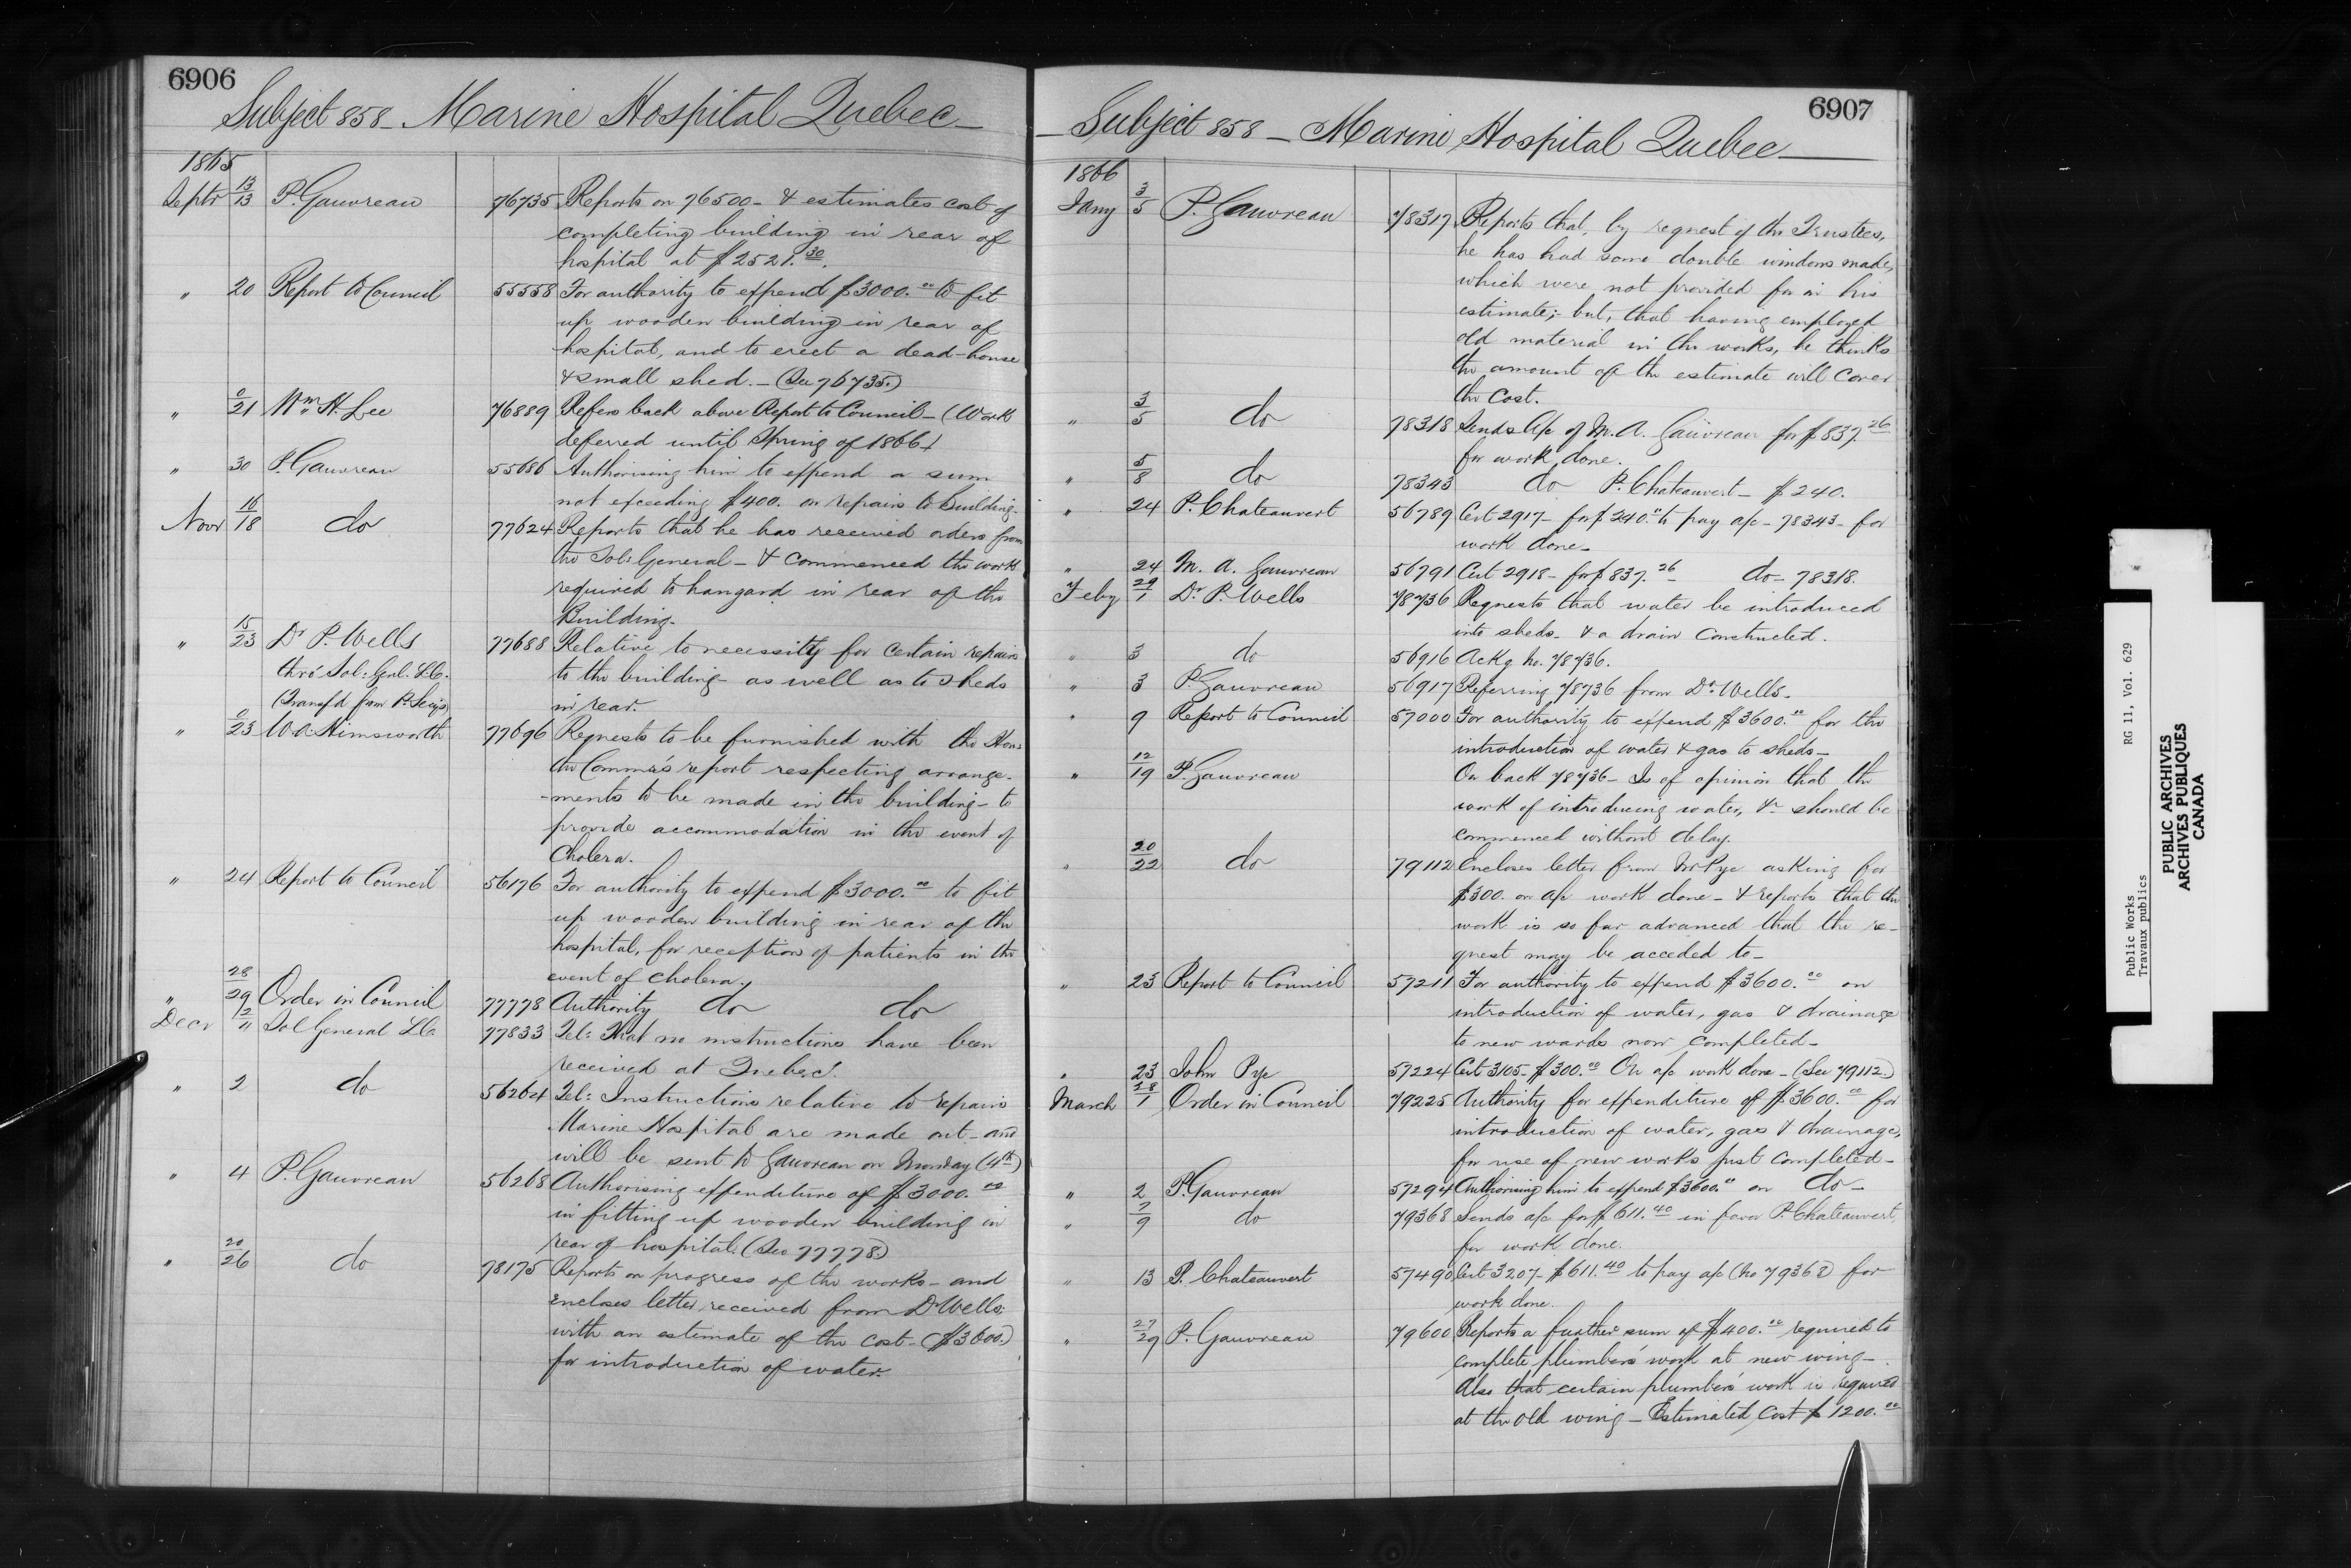 6906
Subject 858 - Marine Hospital Quebec -
1865
Septr 13/13 P. Gauvreau 76735 Reports on 76500 - & estimates cost of
completing building in rear of
hospital at $2521.30.
" 20 Report to Council 55558 For authority to expend $3000.00 to fit
up wooden building in rear of
hospital, and to erect a dead-house
& small shed. - (See 76735.)
" 0/21 Wm. H. Lee 76889 Refers back above Report to Council - (Work
deferred until Spring of 1866)
" 30 P. Gauvreau 55686 Authorising him to expend a sum
not exceeding $400. on repairs to Building.
Novr 16/18 do 77624 Reports that he has received orders from
the Solr General - & commenced the work
required to hangard in rear of the
Building.
" 15/23 Dr P. Wells 77688 Relative to necessity for certain repairs
thro' Sol: Genl. L.C. to the building - as well as to sheds
(Transf'd from P. Secy's) in rear.
" 0/23 W.A. Himsworth 77696 Requests to be furnished with the Hon:
the Commr's report respecting arrange-
-ments to be made in the building - to
provide accommodation in the event of
Cholera.
" 24 Report to Council 56176 For authority to expend $3000.00 to fit
up wooden building in rear of the
hospital, for reception of patients in the
event of cholera.
" 28/29 Order in Council 77778 Authority do do
Decr 2/" Sol General L.C. 77833 Tel: That no instructions have been
received at Quebec.
" 2 do 56264 Tel: Instructions relative to repairs
Marine Hospital are made out - and
will be sent to Gauvreau on Monday (4th)
" 4 P. Gauvreau 56268 Authorising expenditure of $3000.00
in fitting up wooden building in
rear of hospital. (See 77778.)
" 20/26 do 78175 Reports on progress of the works - and
encloses letter received from Dr Wells,
with an estimate of the cost - ($3600.)
for introduction of water.
6907
- Subject 858 - Marine Hospital Quebec -
1866
Jany 3/5 P. Gauvreau 78317 Reports that, by request of the Trustees,
he has had some double windows made,
which were not provided for in his
estimate; but, that having employed
old material in the works, he thinks
the amount of the estimate will cover
the cost.
" 3/5 do 78318 Sends a/c of M. A. Gauvreau for $837.26
for work done.
" 5/8 do 78343 do P. Chateauvert - $240.
" 24 P. Chateauvert 56789 Cert 2917 - for $240.00 to pay a/c - 78343 - for
work done -
" 24 M. A. Gauvreau 56791 Cert 2918 - for $837.26 do - 78318.
Feby 29/1 Dr. P. Wells 78736 Requests that water be introduced
into sheds - & a drain constructed.
" 3 do 56916 Ackg no. 78736.
" 3 P. Gauvreau 56917 Referring 78736 from Dr. Wells -
" 9 Report to Council 57000 For authority to expend $3600.00 for the
introduction of water & gas to sheds -
" 12/19 P. Gauvreau On back 78736 - Is of opinion that the
work of introducing water, &c should be
commenced without delay.
" 20/22 do 79112 Encloses letter from Mr Pye asking for
$300. on a/c work done - & reports that the
work is so far advanced that the re-
quest may be acceded to -
" 23 Report to Council 57211 For authority to expend $3600.00 on
introduction of water, gas & drainage
to new wards now completed -
" 23 John Pye 57224 Cert 3105 - $300.00 On a/c work done - (See 79112.)
March 28/1 Order in Council 79225 Authority for expenditure of $3600.00 for
introduction of water, gas & drainage,
for use of new works just completed -
" 2 P. Gauvreau 57294 Authorising him to expend $3600.00 on do -
" 7/9 do 79368 Sends a/c for $611.40 in favor P. Chateauvert,
for work done.
" 13 P. Chateauvert 57490 Cert 3207 - $611.40 to pay a/c (No 79368) for
work done.
" 27/29 P. Gauvreau 79600 Reports a further sum of $400.00 required to
complete plumbers' work at new wing -
Also that certain plumbers' work is required
at the old wing - Estimated Cost $1200.00
Public Works RG 11, Vol. 629
Travaux publics
PUBLIC ARCHIVES
ARCHIVES PUBLIQUES
CANADA